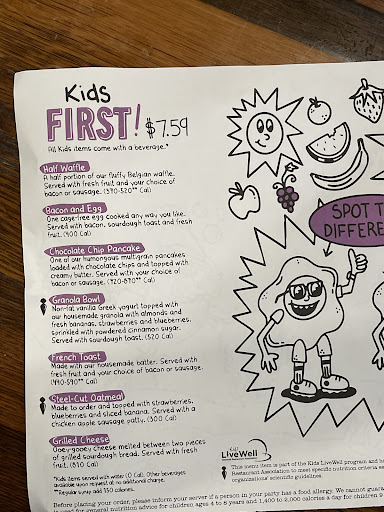 Kids
FIRST! $7.59
All Kids items come with a beverage.*
Half Waffle
A half portion of our fluffy Belgian waffle.
Served with fresh fruit and your choice of
bacon or sausage.
Bacon and Egg
One cage-free egg cooked any way you like.
Served with bacon, sourdough toast and fresh
fruit. (400 Cal)
Chocolate Chip Pancake
One of our humongous multigrain pancakes
loaded with chocolate chips and topped with
creamy butter. Served with your choice of
bacon or sausage.
Granola Bowl
Non-fat vanilla Greek yogurt topped with
our housemade granola with almonds and
fresh bananas, strawberries and blueberries,
sprinkled with powdered cinnamon sugar.
Served with sourdough toast. (520 Cal)
French Toast
Made with our housemade batter. Served with
fresh fruit and your choice of bacon or sausage.
Steel-Cut Oatmeal
Made to order and topped with strawberries,
blueberries and sliced banana. Served with a
chicken apple sausage patty. (300 Cal)
Grilled Cheese
Ooey-gooey cheese melted between two pieces
of grilled sourdough bread. Served with fresh
fruit. (810 Cal)
*Kids items served with water (0 Cal). Other beverages
available upon request at no additional charge.
**Regular syrup add 350 calories.
SPOT T
DIFFERE
Kids
LiveWell
This menu item is part of the Kids LiveWell program and h
Restaurant Association to meet specific nutrition criteria
organizations' scientific guidelines.
Before placing your order, please inform your server if a person in your party has a food allergy. We cannot guara
for general nutrition advice for children ages 4 to 8 years and 1,400 to 2,000 calories a day for children